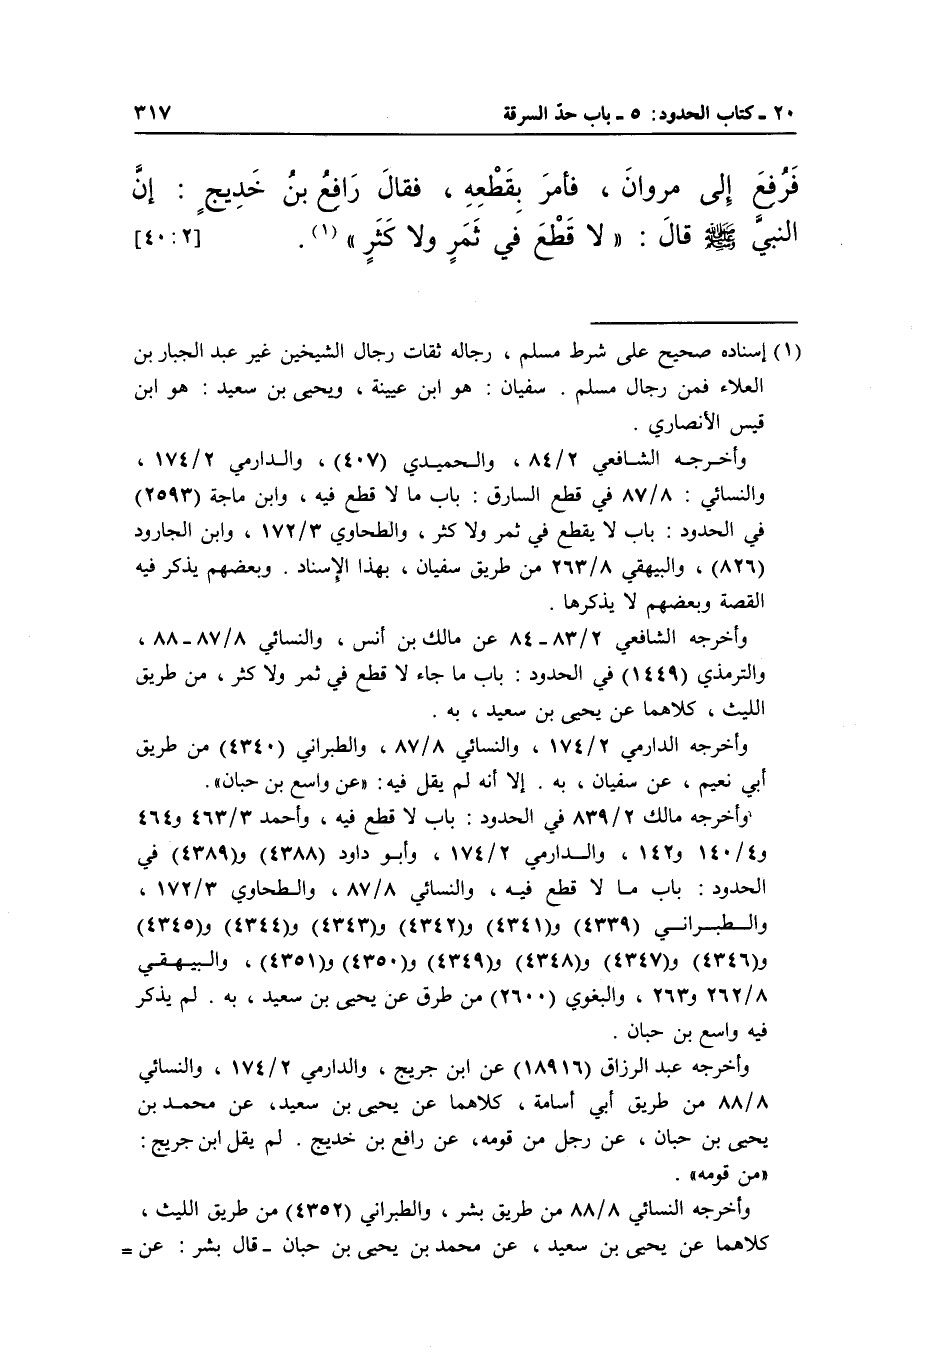 ٢٠ ـ كتاب الحدود: ٥ ـ باب حدّ السرقة ٣١٧
فَرُفِعَ إِلى مروانَ ، فأمرَ بِقَطْعِهِ ، فقالَ رَافِعُ بنُ خَدِيجٍ : إنَّ
النبيَّ ﷺ قالَ : « لا قَطْعَ في ثَمَرٍ ولا كَثَرٍ » (١) . [٢:٤٠]
(١) إسناده صحيح على شرط مسلم ، رجاله ثقات رجال الشيخين غير عبد الجبار بن
العلاء فمن رجال مسلم . سفيان : هو ابن عيينة ، ويحيى بن سعيد : هو ابن
قيس الأنصاري .
وأخرجه الشافعي ٨٤/٢ ، والحميدي (٤٠٧) ، والدارمي ١٧٤/٢ ،
والنسائي : ٨٧/٨ في قطع السارق : باب ما لا قطع فيه ، وابن ماجة (٢٥٩٣)
في الحدود : باب لا يقطع في ثمر ولا كثر ، والطحاوي ١٧٢/٣ ، وابن الجارود
(٨٢٦) ، والبيهقي ٢٦٣/٨ من طريق سفيان ، بهذا الإسناد . وبعضهم يذكر فيه
القصة وبعضهم لا يذكرها .
وأخرجه الشافعي ٨٣/٢ـ٨٤ عن مالك بن أنس ، والنسائي ٨٧/٨ـ٨٨ ،
والترمذي (١٤٤٩) في الحدود : باب ما جاء لا قطع في ثمر ولا كثر ، من طريق
الليث ، كلاهما عن يحيى بن سعيد ، به .
وأخرجه الدارمي ١٧٤/٢ ، والنسائي ٨٧/٨ ، والطبراني (٤٣٤٠) من طريق
أبي نعيم ، عن سفيان ، به . إلا أنه لم يقل فيه: «عن واسع بن حبان».
وأخرجه مالك ٨٣٩/٢ في الحدود : باب لا قطع فيه ، وأحمد ٤٦٣/٣ و٤٦٤
و١٤٠/٤ و١٤٢ ، والدارمي ١٧٤/٢ ، وأبو داود (٤٣٨٨) و(٤٣٨٩) في
الحدود : باب ما لا قطع فيه ، والنسائي ٨٧/٨ ، والطحاوي ١٧٢/٣ ،
والطبراني (٤٣٣٩) و(٤٣٤١) و(٤٣٤٢) و(٤٣٤٣) و(٤٣٤٤) و(٤٣٤٥)
و(٤٣٤٦) و(٤٣٤٧) و(٤٣٤٨) و(٤٣٤٩) و(٤٣٥٠) و(٤٣٥١) ، والبيهقي
٢٦٢/٨ و٢٦٣ ، والبغوي (٢٦٠٠) من طرق عن يحيى بن سعيد ، به . لم يذكر
فيه واسع بن حبان .
وأخرجه عبد الرزاق (١٨٩١٦) عن ابن جريج ، والدارمي ١٧٤/٢ ، والنسائي
٨٨/٨ من طريق أبي أسامة ، كلاهما عن يحيى بن سعيد، عن محمد بن
يحيى بن حبان ، عن رجل من قومه، عن رافع بن خديج . لم يقل ابن جريج :
«من قومه» .
وأخرجه النسائي ٨٨/٨ من طريق بشر ، والطبراني (٤٣٥٢) من طريق الليث ،
كلاهما عن يحيى بن سعيد ، عن محمد بن يحيى بن حبان ـ قال بشر : عن =